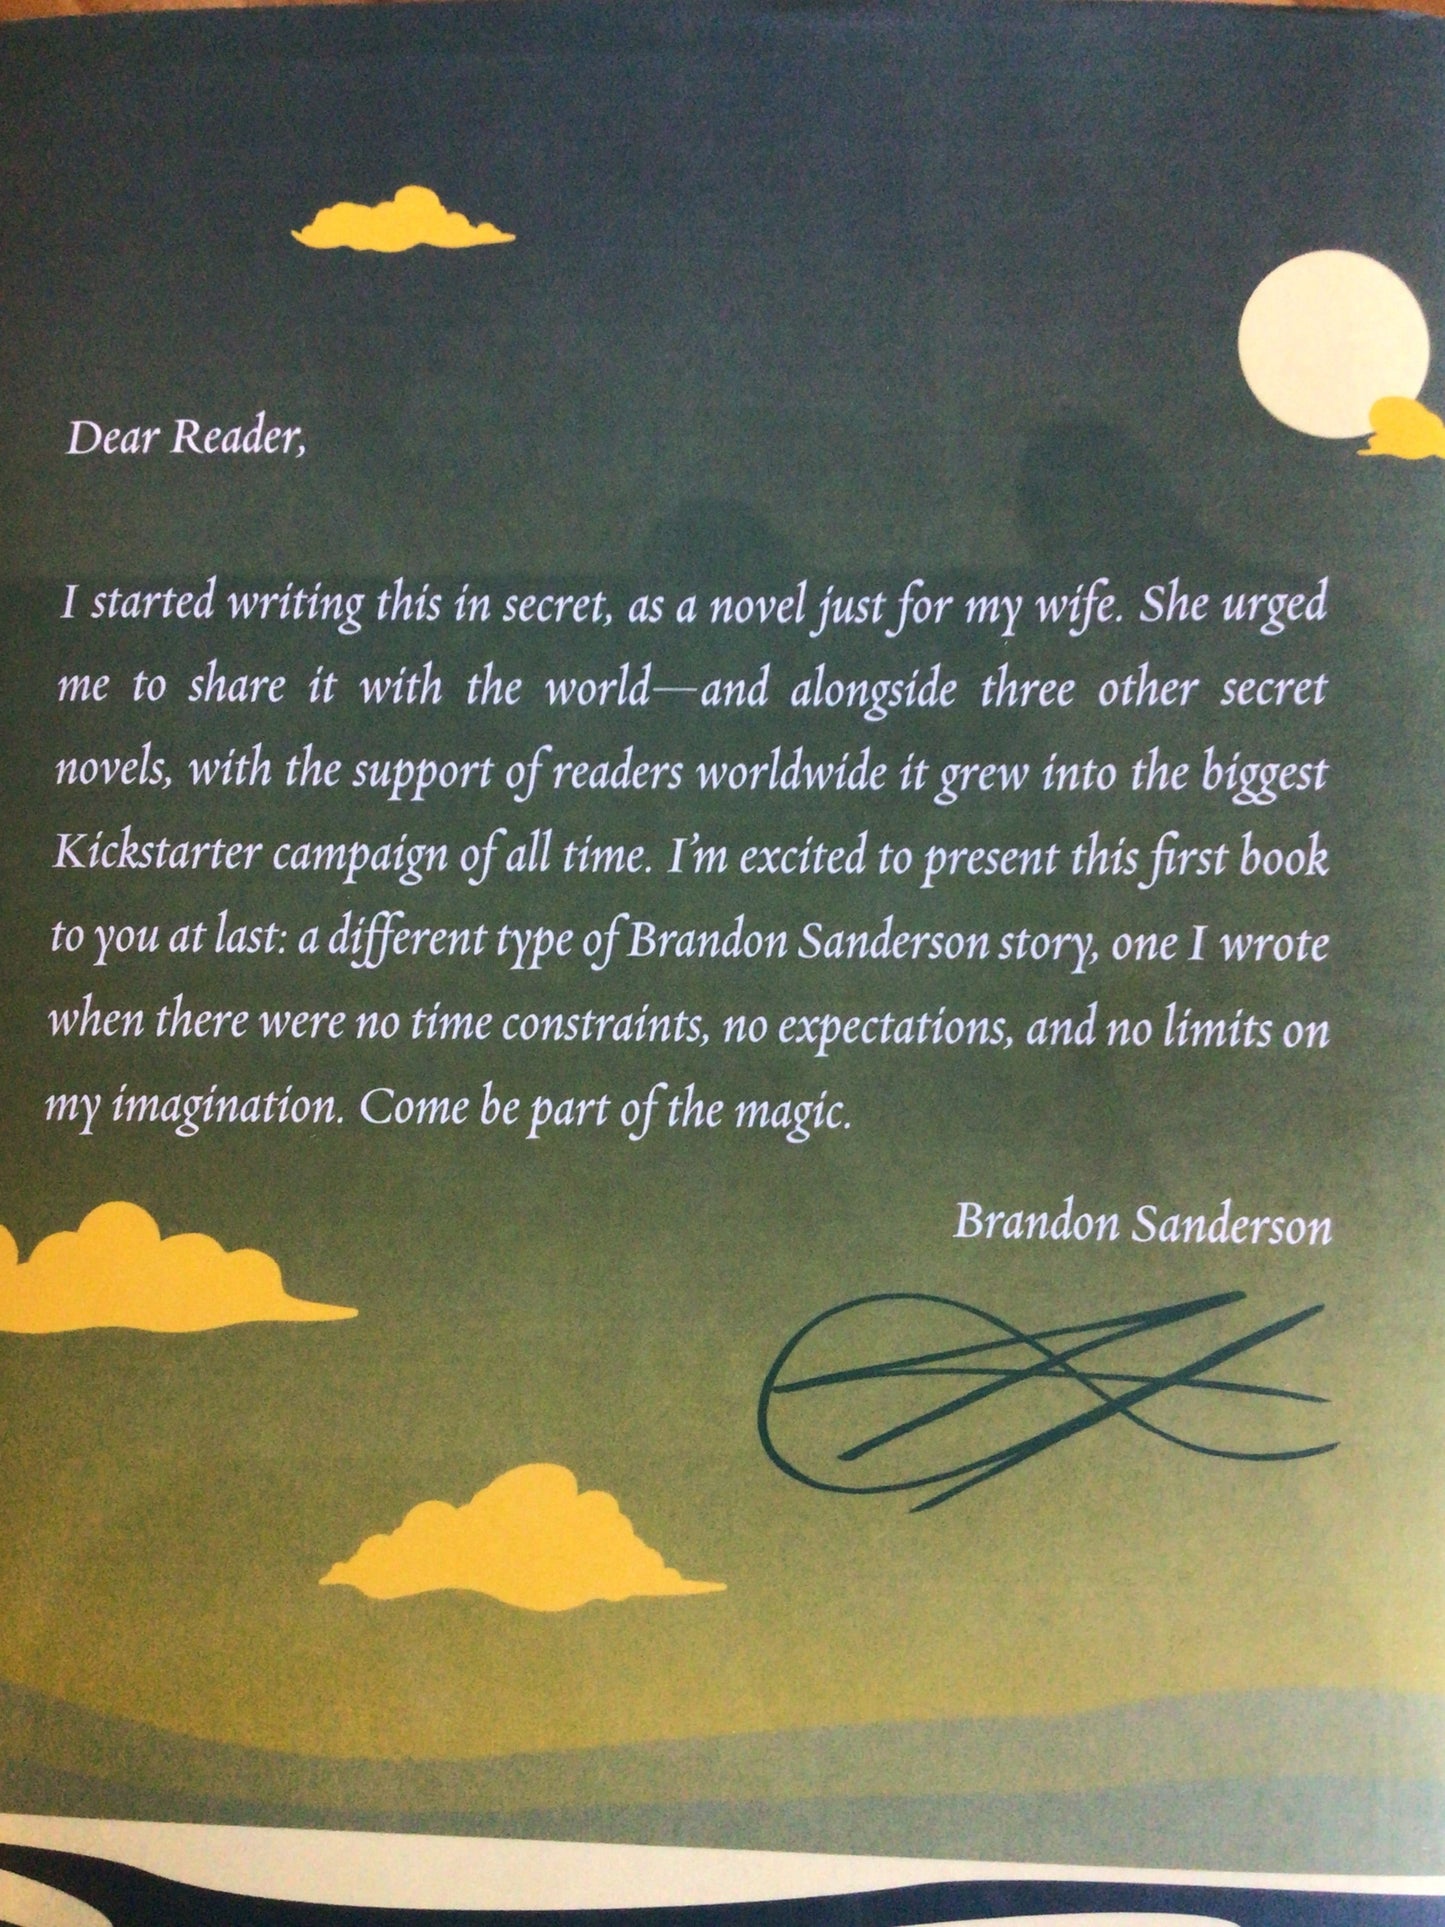 Dear Reader,
I started writing this in secret, as a novel just for my wife. She urged
me to share it with the world—and alongside three other secret
novels, with the support of readers worldwide it grew into the biggest
Kickstarter campaign of all time. I'm excited to present this first book
to you at last: a different type of Brandon Sanderson story, one I wrote
when there were no time constraints, no expectations, and no limits on
my imagination. Come be part of the magic.
Brandon Sanderson